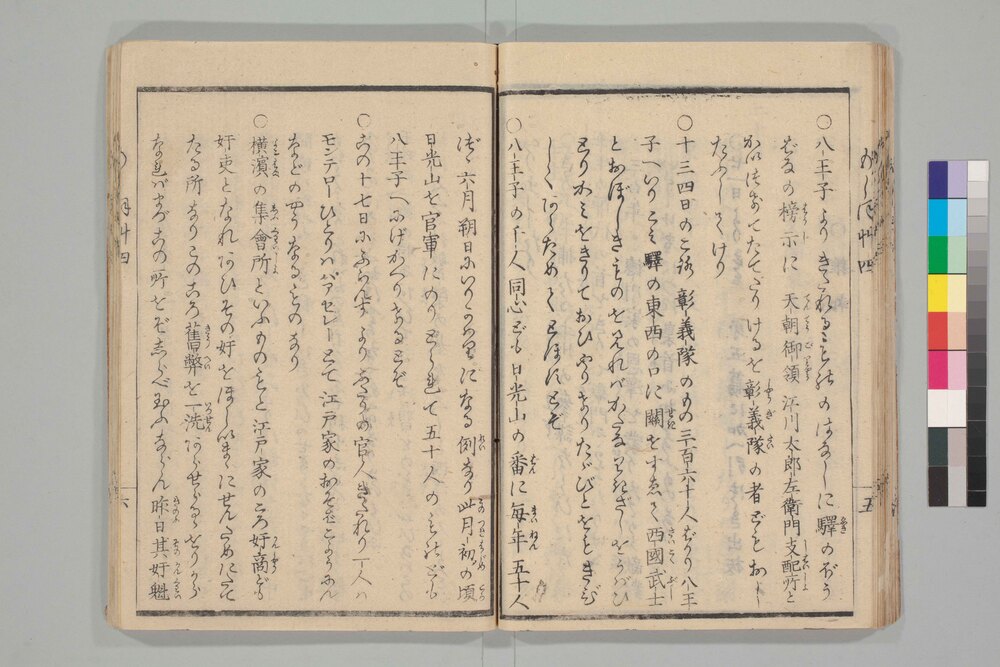 ○八王子よりきたれるものゝはなしに驛のぼう
ばなの榜示に 天朝御領 江川太郎左衛門支配所と
かいつけてたてたりけるを彰義隊の者どもおし
たふしてけり
○十三四日のころ 彰義隊のもの三百六十人ばかり八王
子へいりこみ驛の東西の口に關をすゑて西國武士
とおぼしきものを見れバかたな
しくあらためてとほすとぞ
○八王子の千人同心ども日光山の番に毎年五十人
づゝ六月朔日にいりかはりになる例なり此月初の頃
日光山を官軍にのりとられて五十人のものども
八王子へにげかへりきぬとぞ
○この十七日にふらんすよりふたりの官人きたれり一人ハ
モンテローひとりハバアセレーとて江戸家の
などのやうなるものなり
○横濱の集會所といふものもと江戸家のころ奸商ども
奸吏となれあひその奸をほしいまゝにせんためにたて
たる所なりこのころ舊弊を一洗あらせらるゝをりから
なれバまづこの所をぞしらべ玉ふならん昨日其奸魁
五
六